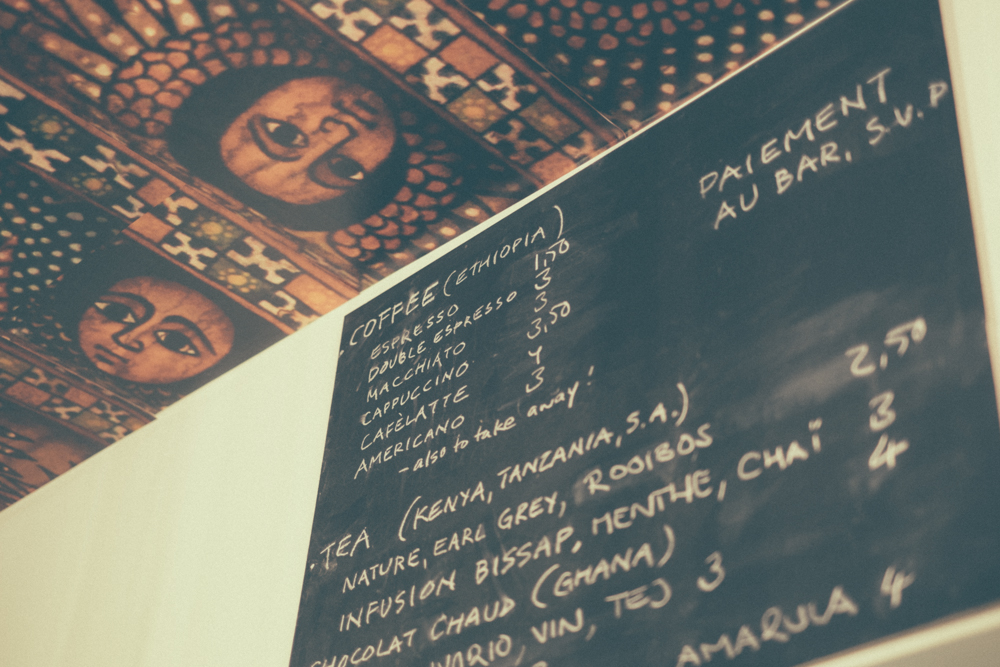 PAIEMENT
AU BAR, S.V.P
· COFFEE (ETHIOPIA)
ESPRESSO 1,50
DOUBLE ESPRESSO 3
MACCHIATO 3
CAPPUCCINO 3,50
CAFÈLATTE 4
AMERICANO 3
- also to take away!
· TEA (KENYA, TANZANIA, S.A.)
NATURE, EARL GREY, ROOIBOS 2,50
INFUSION BISSAP, MENTHE, CHAÏ 3
CHOCOLAT CHAUD (GHANA) 4
VIN, TEJ 3
AMARULA 4